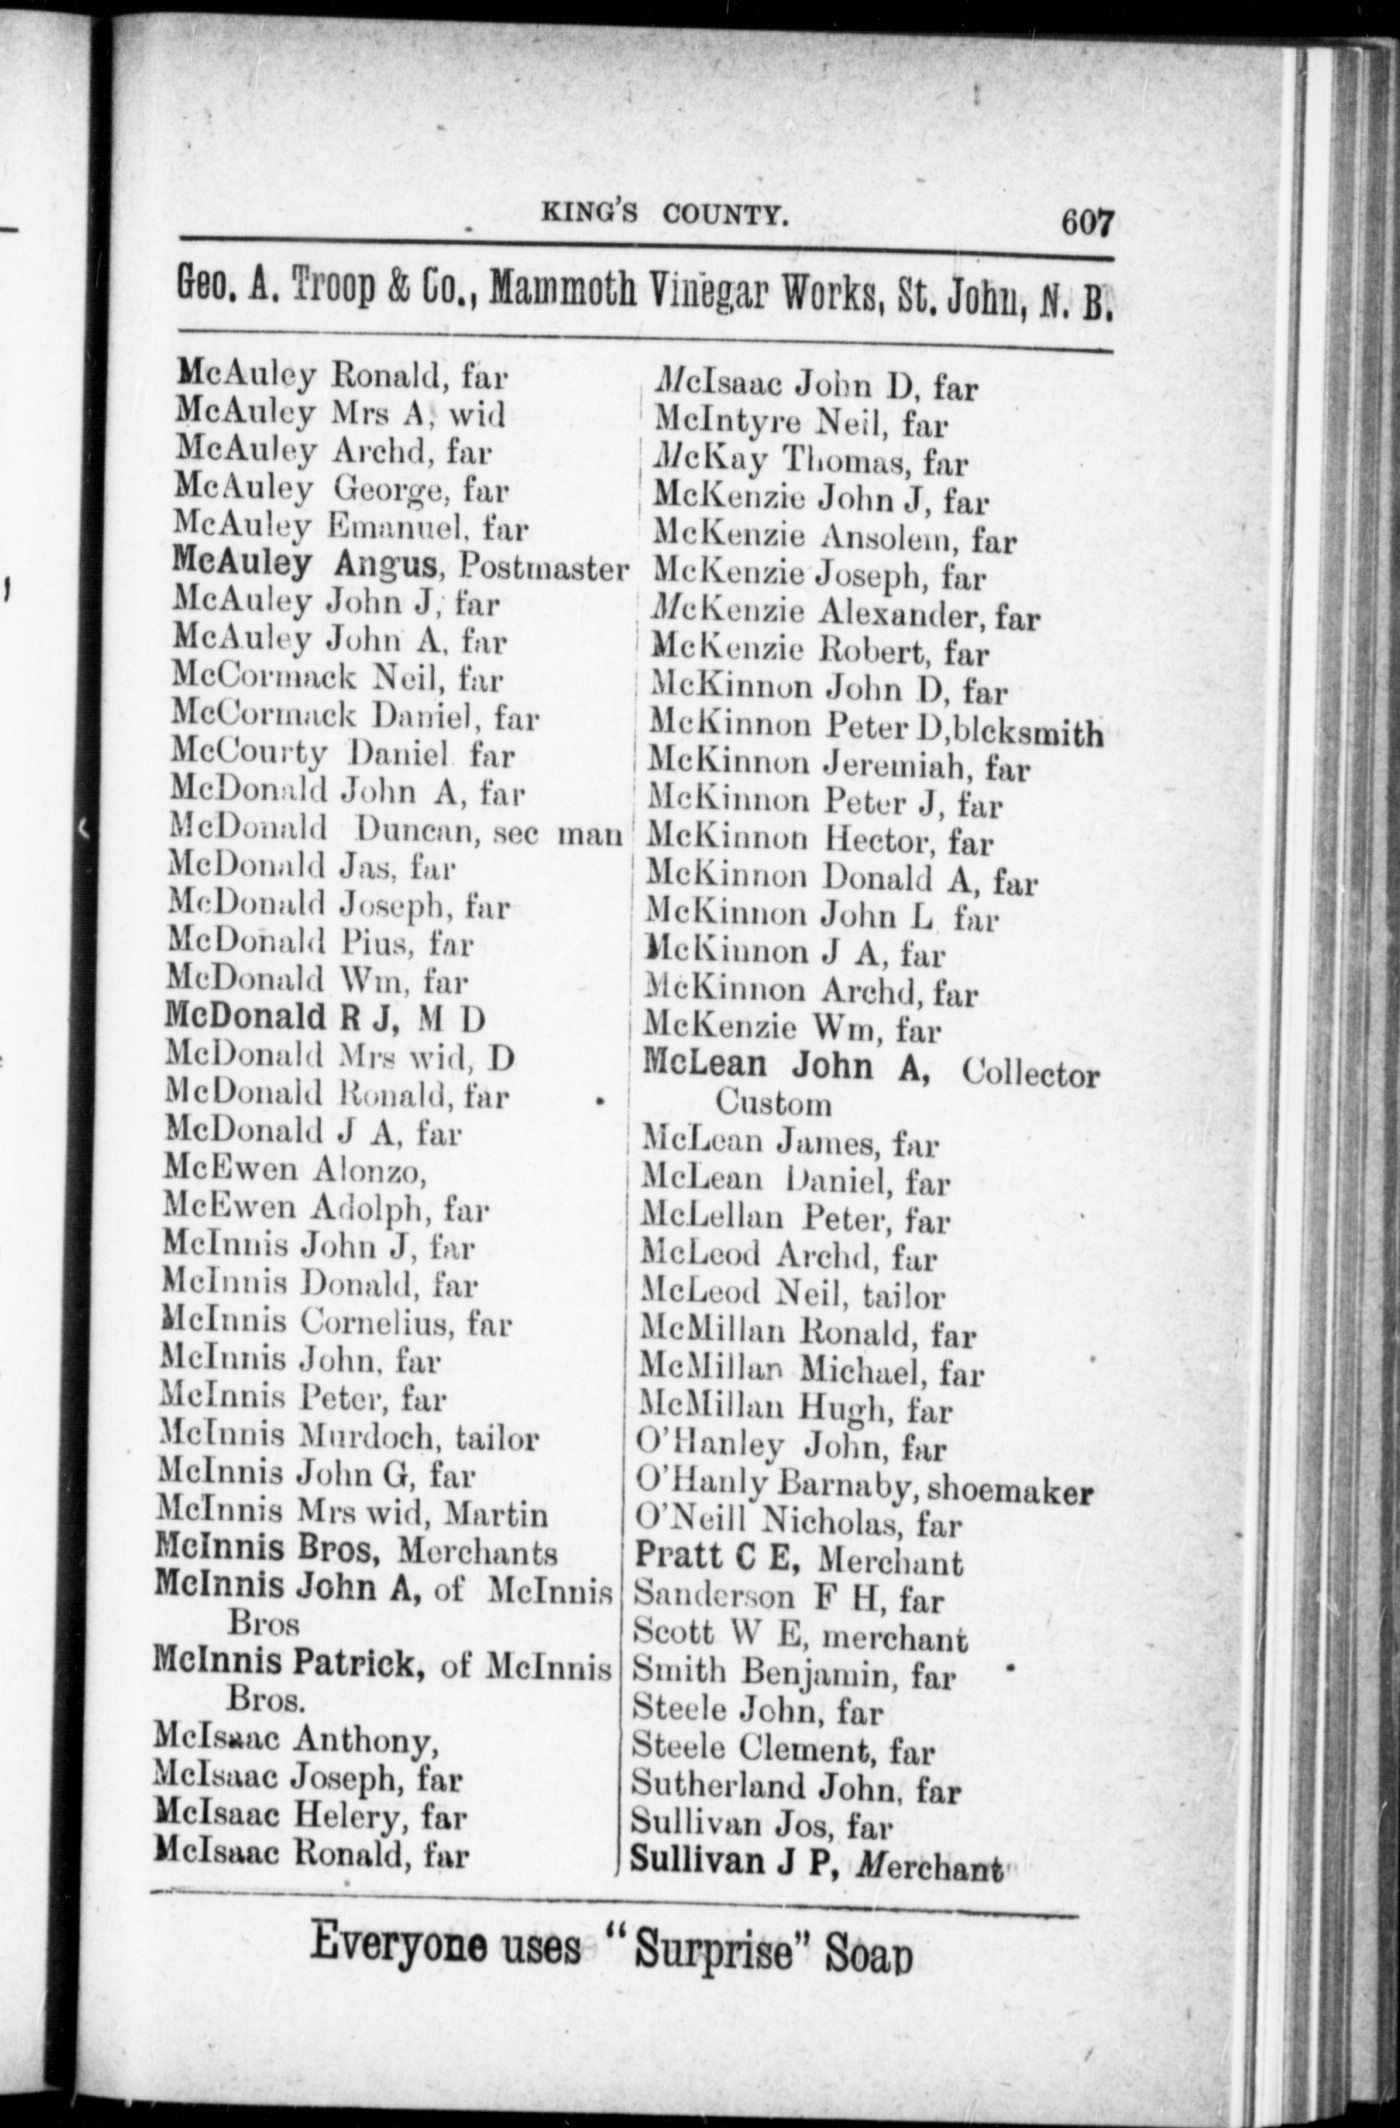 KING'S COUNTY. 607
Geo. A. Troop & Co., Mammoth Vinegar Works, St. John, N. B.
McAuley Ronald, far
McAuley Mrs A, wid
McAuley Archd, far
McAuley George, far
McAuley Emanuel, far
McAuley Angus, Postmaster
McAuley John J, far
McAuley John A, far
McCormack Neil, far
McCormack Daniel, far
McCourty Daniel far
McDonald John A, far
McDonald Duncan, sec man
McDonald Jas, far
McDonald Joseph, far
McDonald Pius, far
McDonald Wm, far
McDonald R J, M D
McDonald Mrs wid, D
McDonald Ronald, far
McDonald J A, far
McEwen Alonzo,
McEwen Adolph, far
McInnis John J, far
McInnis Donald, far
McInnis Cornelius, far
McInnis John, far
McInnis Peter, far
McInnis Murdoch, tailor
McInnis John G, far
McInnis Mrs wid, Martin
McInnis Bros, Merchants
McInnis John A, of McInnis
Bros
McInnis Patrick, of McInnis
Bros.
McIsaac Anthony,
McIsaac Joseph, far
McIsaac Helery, far
McIsaac Ronald, far
McIsaac John D, far
McIntyre Neil, far
McKay Thomas, far
McKenzie John J, far
McKenzie Ansolem, far
McKenzie Joseph, far
McKenzie Alexander, far
McKenzie Robert, far
McKinnon John D, far
McKinnon Peter D,blcksmith
McKinnon Jeremiah, far
McKinnon Peter J, far
McKinnon Hector, far
McKinnon Donald A, far
McKinnon John L far
McKinnon J A, far
McKinnon Archd, far
McKenzie Wm, far
McLean John A, Collector
Custom
McLean James, far
McLean Daniel, far
McLellan Peter, far
McLeod Archd, far
McLeod Neil, tailor
McMillan Ronald, far
McMillan Michael, far
McMillan Hugh, far
O'Hanley John, far
O'Hanly Barnaby, shoemaker
O'Neill Nicholas, far
Pratt C E, Merchant
Sanderson F H, far
Scott W E, merchant
Smith Benjamin, far
Steele John, far
Steele Clement, far
Sutherland John, far
Sullivan Jos, far
Sullivan J P, Merchant
Everyone uses "Surprise" Soap